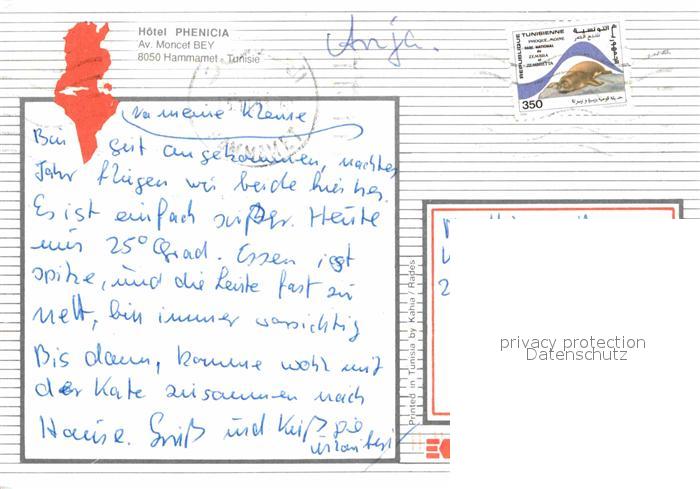 Hôtel PHENICIA
Av. Moncef BEY
8050 Hammamet - Tunisie
Anja.
REPUBLIQUE TUNISIENNE
PHOQUE-MOINE
PARC NATIONAL
DE
ZEMBRA
ET
ZEMBRETTA
350
الجمهورية التونسية
na meine Kleine
Bin gut angekommen, nächstes
Jahr fliegen wir beide hierher.
Es ist einfach super. Heute
nur 25° Grad. Essen ist
spitze, und die Leute fast zu
nett, bin immer vorsichtig
Bis dann, komme wohl mit
der Kate zusammen nach
Hause. Gruß und Kuß
Printed in Tunisia by Kahia / Rades
privacy protection
Datenschutz